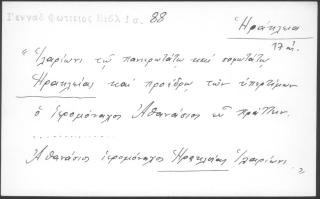 Γεννάδ Φωτίειος Βιβλ 1 σ. 88
Ἡράκλεια
17 αἰ.
"Ἱλαρίωνι τῷ πανιερωτάτῳ καὶ σοφωτάτῳ
Ἡρακλείας καὶ προέδρῳ τῶν ὑπερτίμων
ὁ ἱερομόναχος Ἀθανάσιος εὖ πράττειν.
..............
Ἀθανάσιος ἱερομόναχος Ἡρακλείας Ἱλαρίωνι.